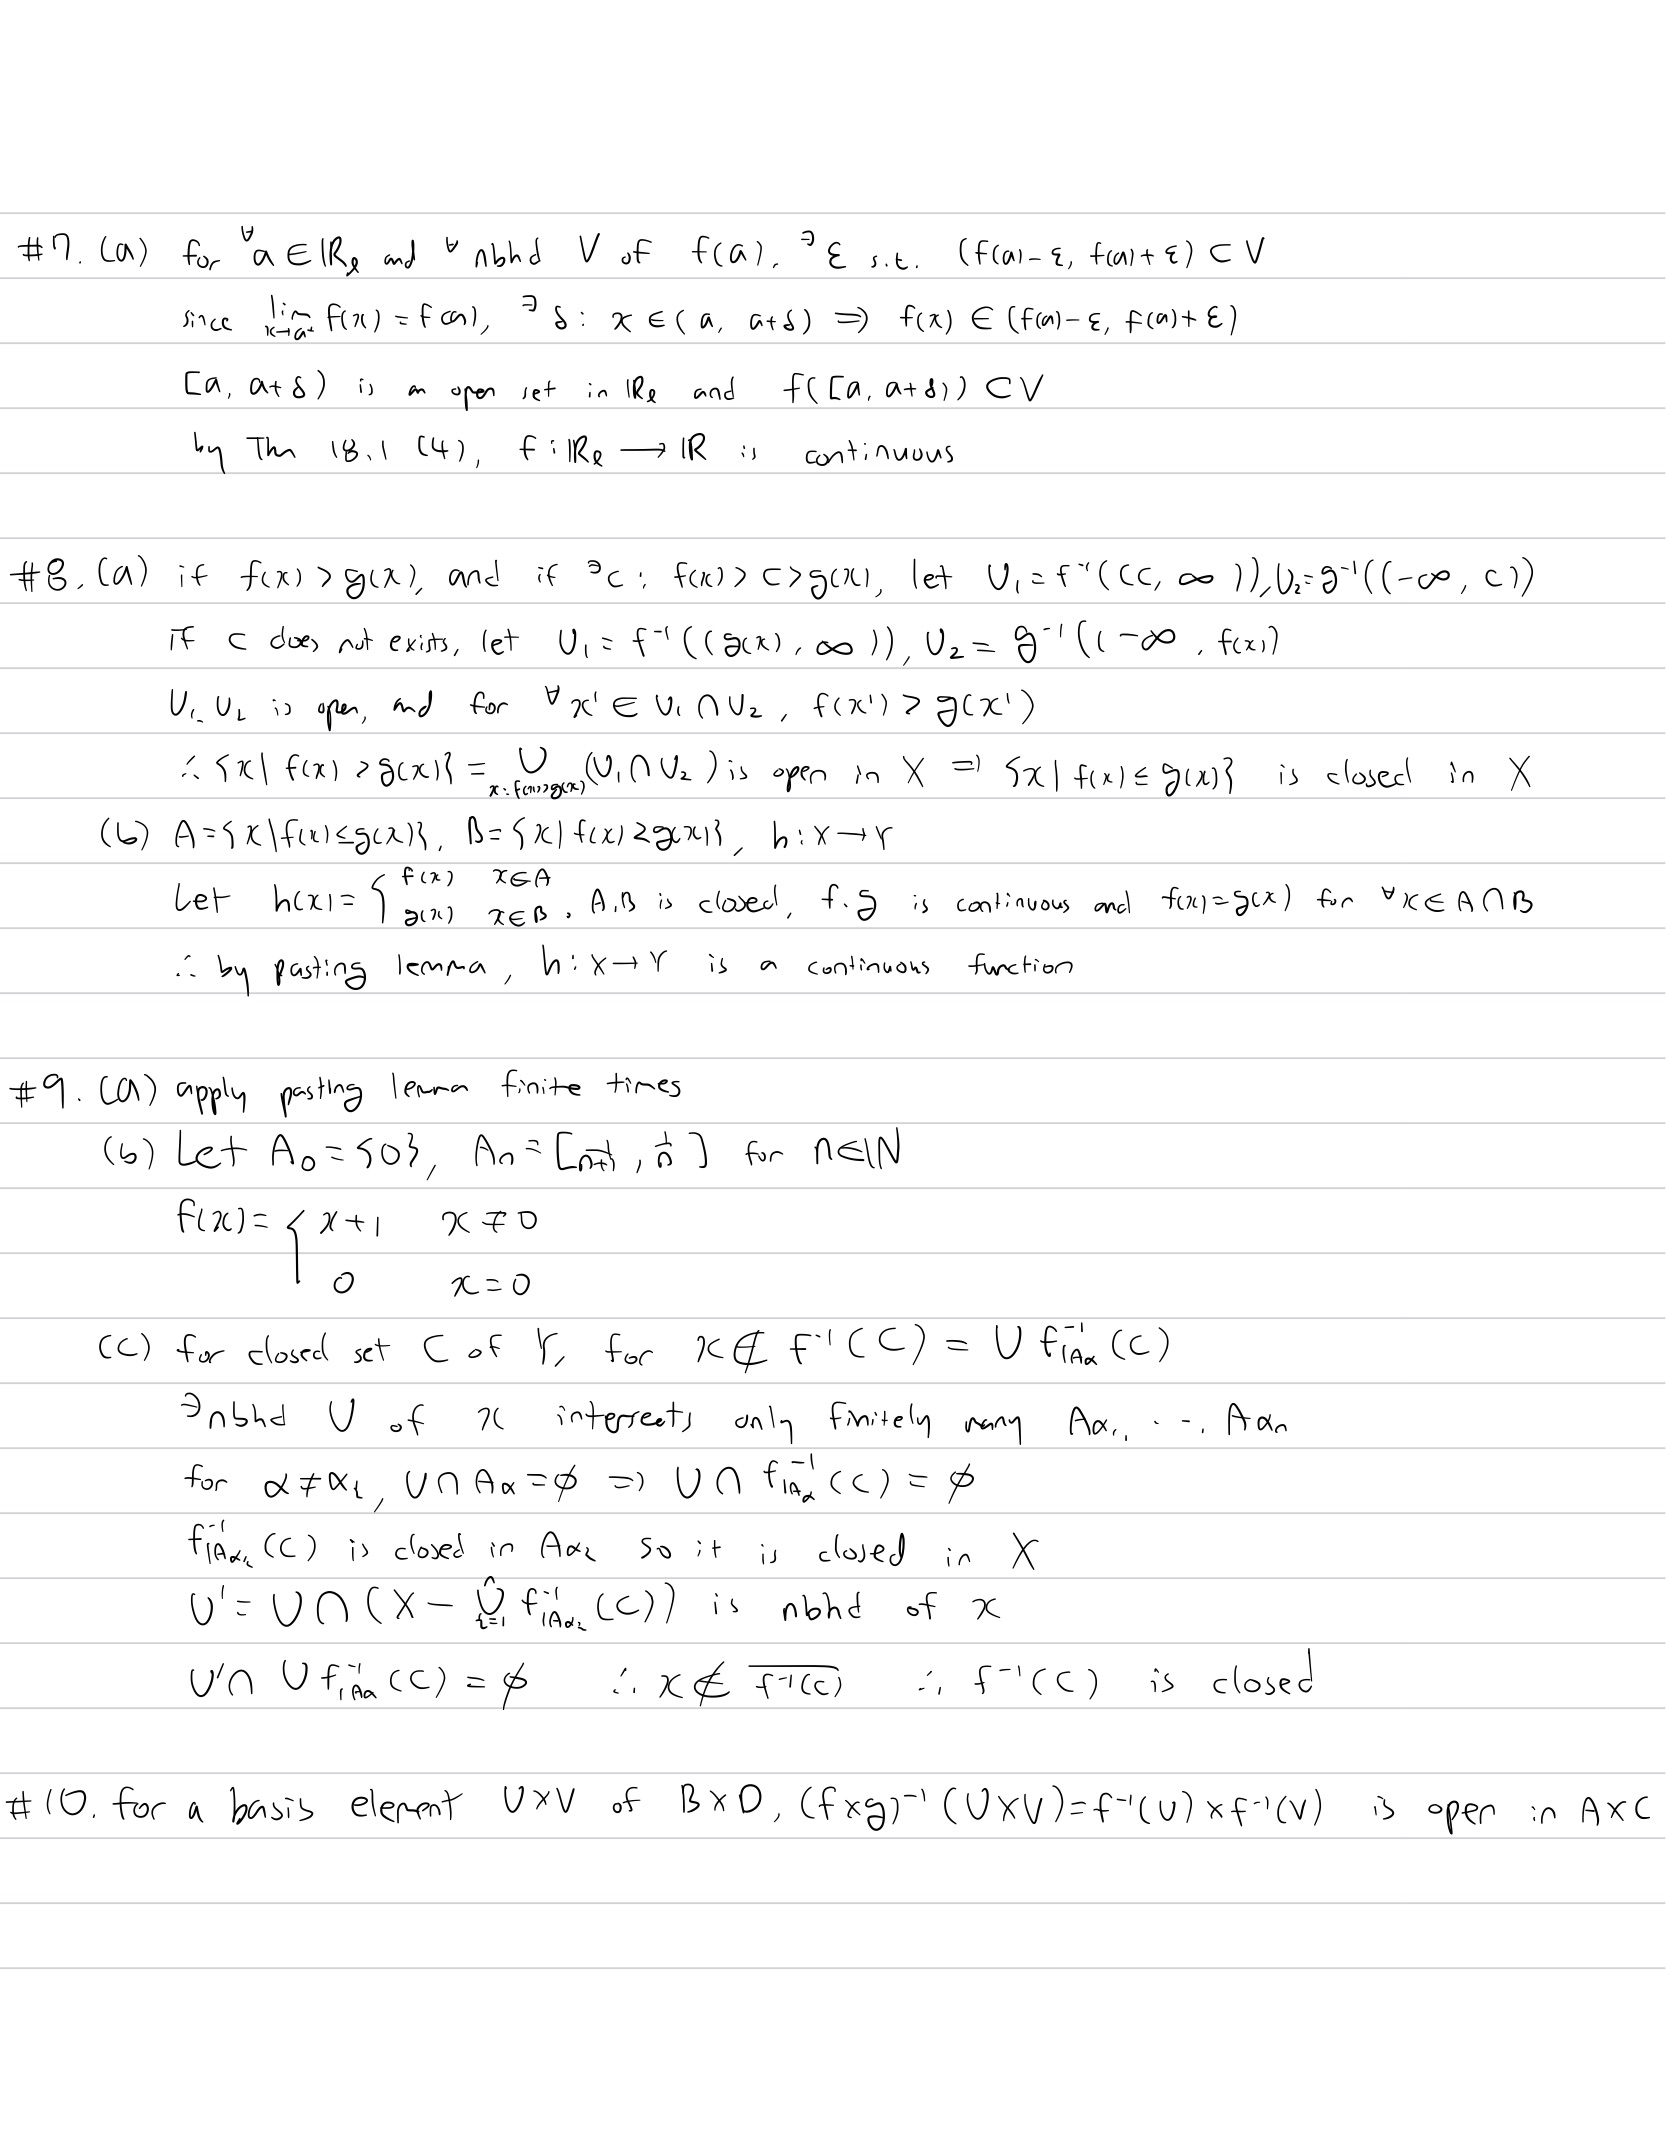 #7. (a) for ∀a ∈ ℝℓ and ∀ nbhd V of f(a), ∃ ε s.t. (f(a)-ε, f(a)+ε) ⊂ V
since lim x→a⁺ f(x) = f(a), ∃ δ : x ∈ (a, a+δ) ⇒ f(x) ∈ (f(a)-ε, f(a)+ε)
[a, a+δ) is an open set in ℝℓ and f([a, a+δ)) ⊂ V
by Thm 18.1 (4), f : ℝℓ → ℝ is continuous
#8. (a) if f(x) > g(x), and if ∃c : f(x) > c > g(x), let U₁ = f⁻¹((c, ∞)), U₂ = g⁻¹((-∞, c))
if c does not exists, let U₁ = f⁻¹((g(x), ∞)), U₂ = g⁻¹((-∞, f(x))
U₁, U₂ is open, and for ∀x' ∈ U₁ ∩ U₂, f(x') > g(x')
∴ {x | f(x) > g(x)} = ∪ x: f(x)>g(x) (U₁ ∩ U₂) is open in X ⇒ {x | f(x) ≤ g(x)} is closed in X
(b) A = {x | f(x) ≤ g(x)}, B = {x | f(x) ≥ g(x)}, h : X → Y
Let h(x) = { f(x) x∈A
g(x) x∈B, A, B is closed, f, g is continuous and f(x) = g(x) for ∀x ∈ A ∩ B
∴ by pasting lemma, h : X → Y is a continuous function
#9. (a) apply pasting lemma finite times
(b) Let A₀ = {0}, Aₙ = [1/(n+1), 1/n] for n∈ℕ
f(x) = { x+1 x ≠ 0
0 x = 0
(c) for closed set C of Y, for x ∉ f⁻¹(C) = ∪ f|Aα⁻¹(C)
∃nbhd U of x intersects only finitely many Aα₁, ..., Aαₙ
for α ≠ αᵢ, U ∩ Aα = ∅ ⇒ U ∩ f|Aα⁻¹(C) = ∅
f|Aαᵢ⁻¹(C) is closed in Aαᵢ so it is closed in X
U' = U ∩ (X - ∪ᵢ₌₁ⁿ f|Aαᵢ⁻¹(C)) is nbhd of x
U' ∩ ∪ f|Aα⁻¹(C) = ∅ ∴ x ∉ \overline{f⁻¹(C)} ∴ f⁻¹(C) is closed
#10. for a basis element U×V of B×D, (f×g)⁻¹(U×V) = f⁻¹(U) × f⁻¹(V) is open in A×C